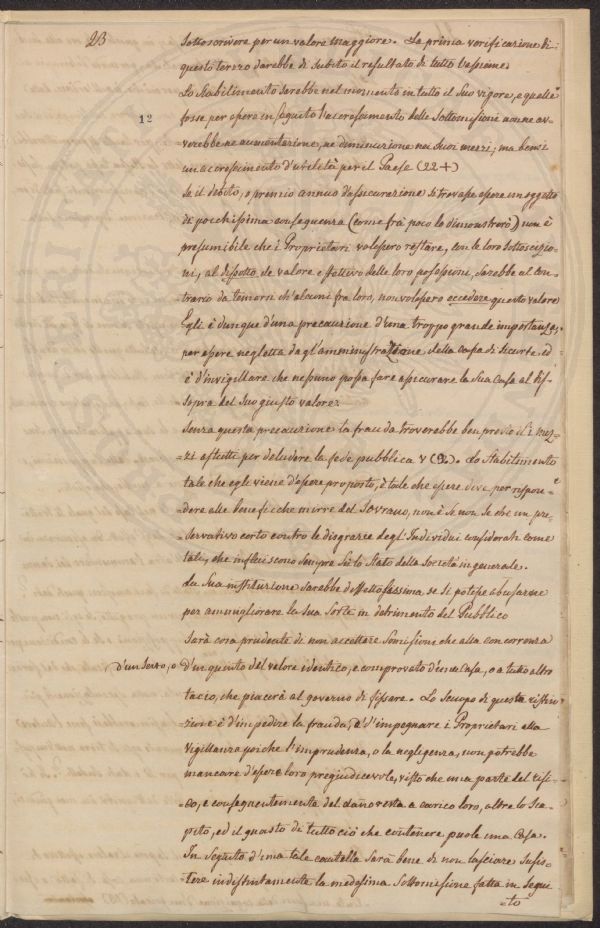 23
sottoscrivere per un valore maggiore. La prima verificazione di
questo terzo darebbe di subito il resultato di tutto l'assieme.
Lo Stabilimento sarebbe nel momento in tutto il suo vigore, e quelle
12
fosse, per opera in seguito l'accrescimento delle Sottomissioni non ne av-
-verebbe ne aumentazione, ne diminuzione nei suoi mezzi; ma bensi
un accrescimento d'utilità per il Paese (22+)
Se il debito, o premio annuo d'assicurazione si trovasse essere un oggetto
di pocchissima conseguenza (come frà poco lo dimonstrerò) non è
presumibile che i Proprietari volessero restare, con le loro sottoscrizio-
ni, al dissotto de valore effettivo delle loro possessioni, sarebbe al con-
trario da temersi ch'alcuni fra loro, non volessero eccedere questo valore
Egli è dunque d'una precauzione d'una troppo grande importanza,
per essere negletta dagl'amministrazione della Cassa di Sicurtà ed
è d'invigillare che nessuno possa fare assicurare la Sua Casa al dis-
-sopra del suo giusto valore.
Senza questa precauzione la frauda troverebbe ben presto i mez-
zi astutti per deludere la fede pubblica. Lo Stabilimento
tale che egle viene d'essere proposto, è tale che essere deve per rispon-
dere alle benefiche mirre del Sovrano, non è si non se che un pre-
-servativo certo contro le disgrazie degl'Individui considerati come
tali, che influiscono sempre sù lo Stato della Società in generale.
La Sua instituzione sarebbe diffettosissima se si potesse abusarne
per ammigliorare la Sua Sorte in detrimento del Pubblico
Sarà cosa prudente di non accettare Somissione che alla concorrenza
d'un Sesto, o d'un quinto del valore identico, e comprovato d'una Casa, o a tutto altro
tacio, che piacerà al governo di fissare. Lo Scuopo di questa ristri-
-zione è d'impedire la frauda, e d'impegnare i Proprietari alla
Vigillanza poiche l'imprudenza, o la negligenza, non potrebbe
mancare d'essere loro pregiudicevole, visto che una parte del risi-
-co, e conseguentemente del danno resta a carico loro, oltre lo Sca-
pito, ed il guasto di tutto ciò che contenere puole una Casa.
In Seguito d'una tale cautella Sarà bene di non lasciare Sussis-
-tere indistintamente la medesima Sottomissione fatta in Segui
-to